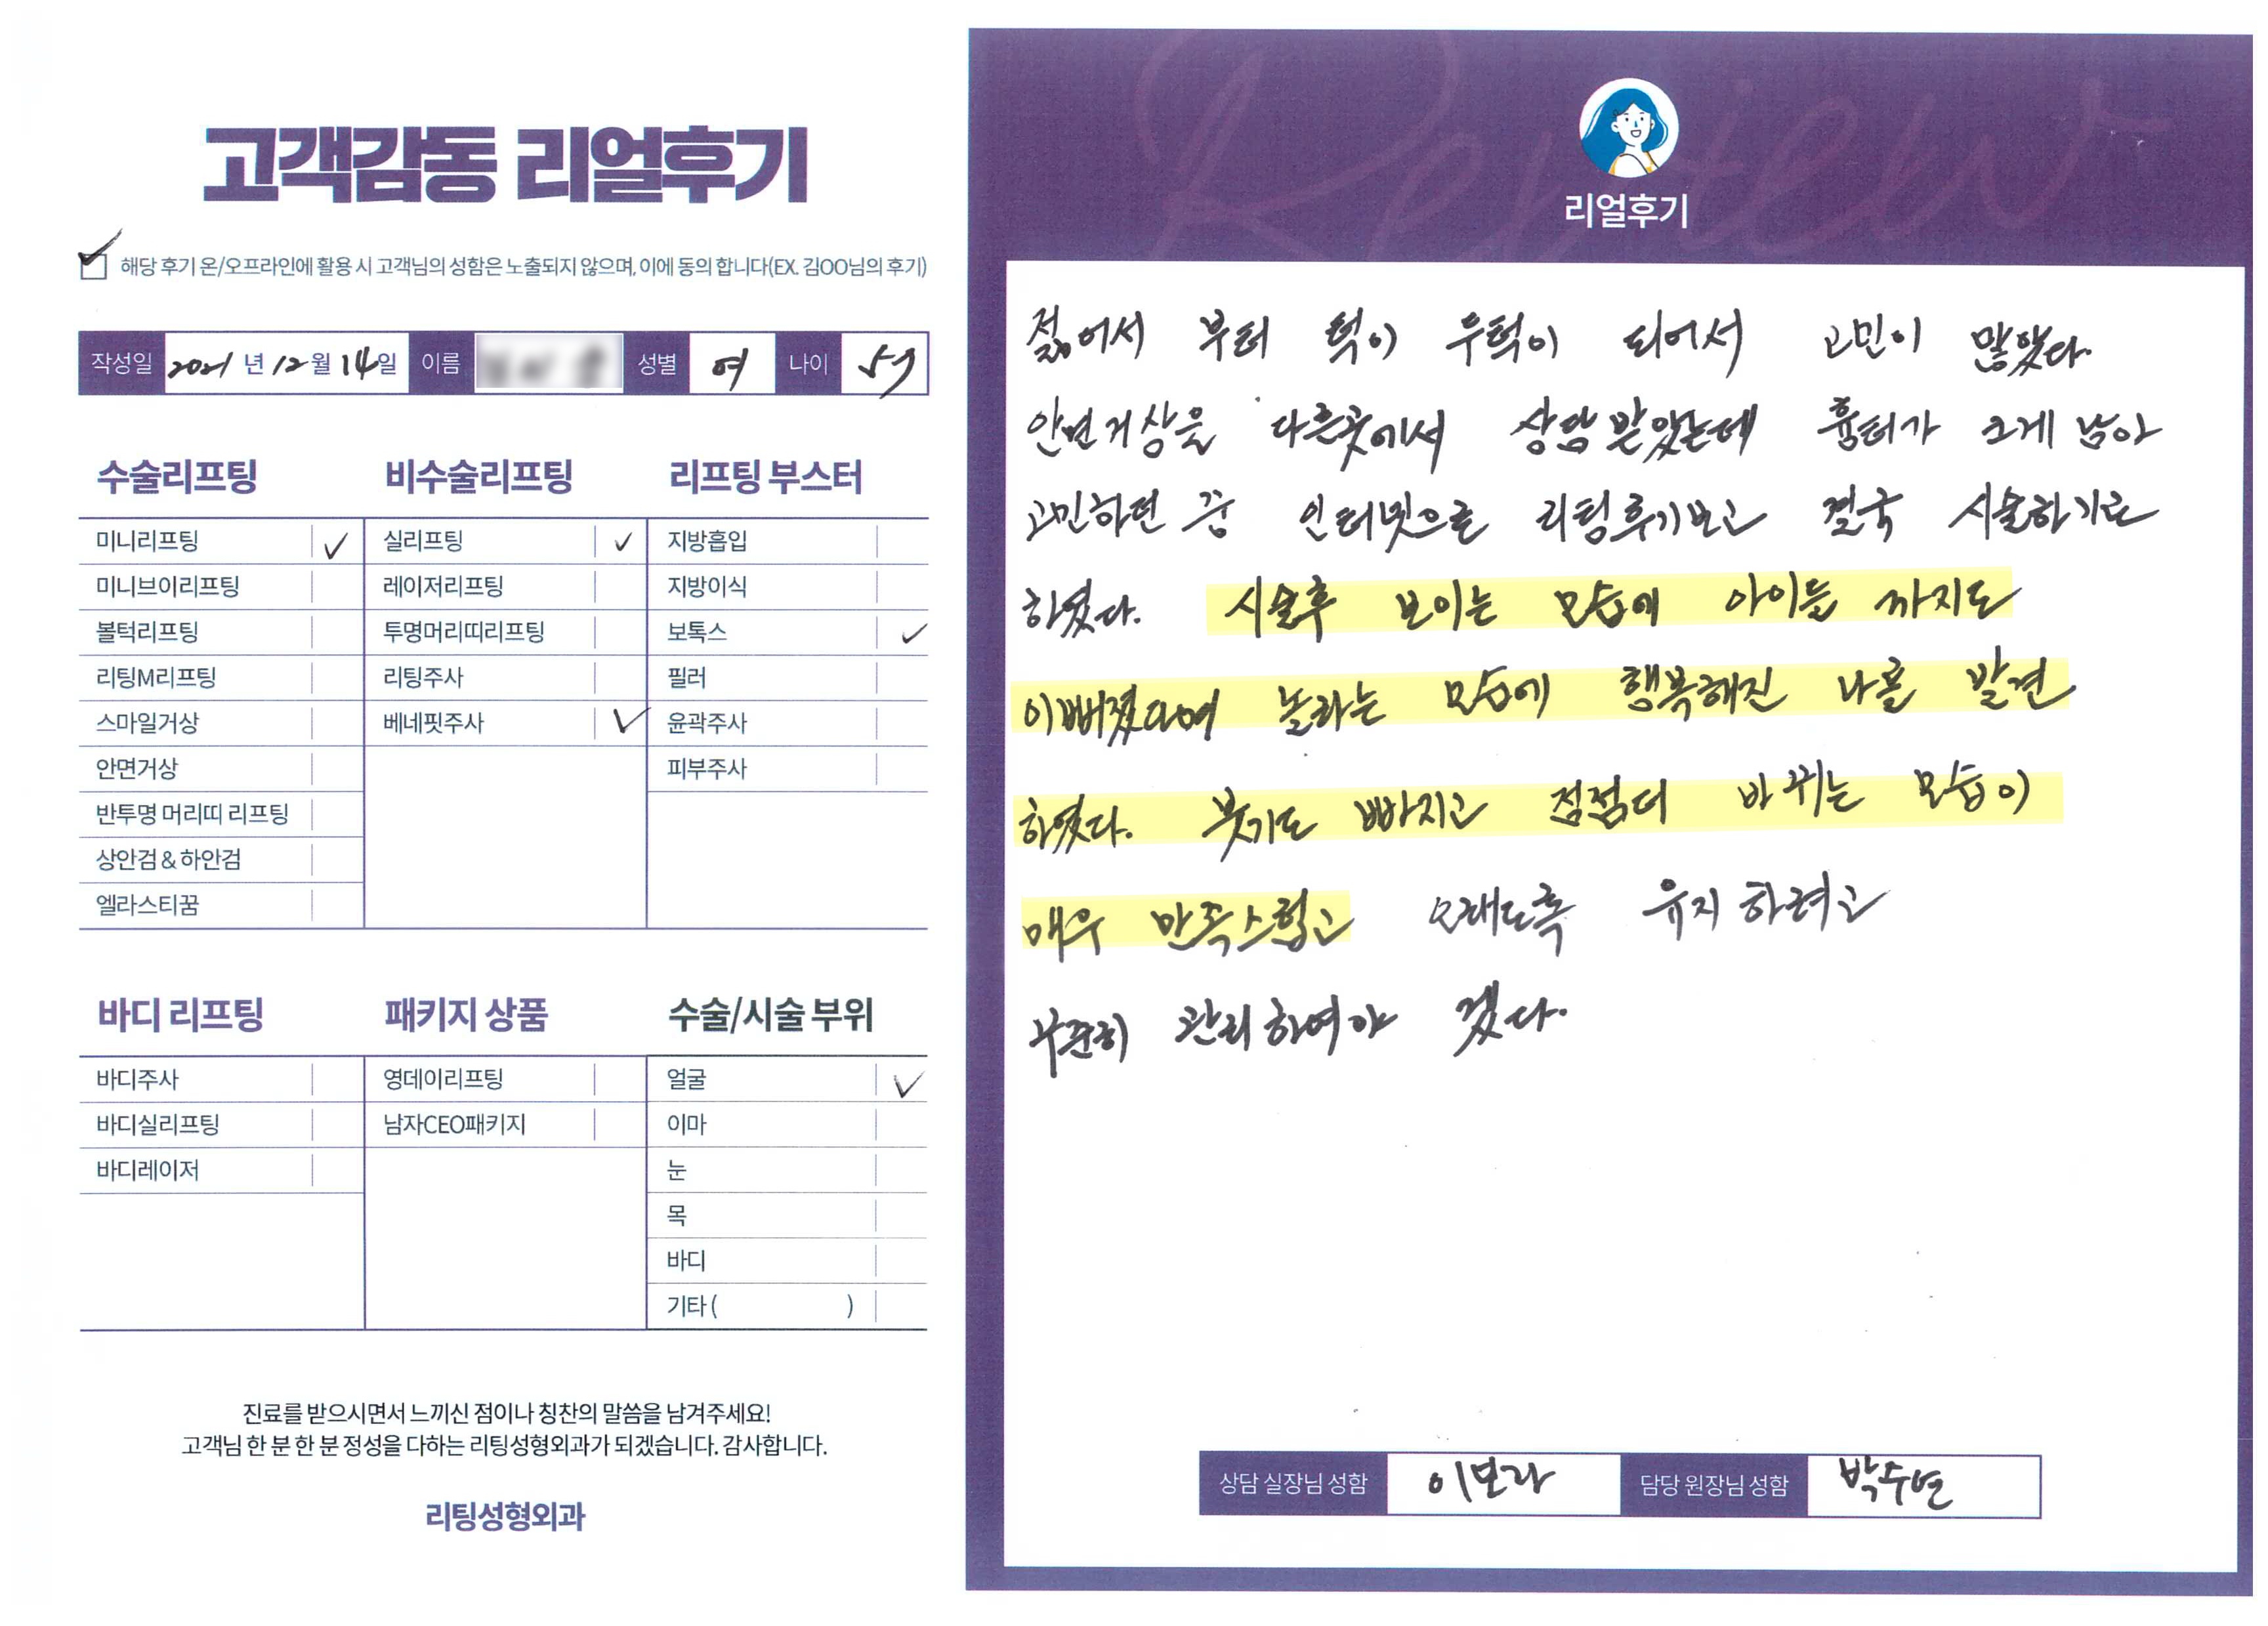 고객감동 리얼후기
해당 후기 온/오프라인에 활용 시 고객님의 성함은 노출되지 않으며, 이에 동의 합니다(EX. 김OO님의 후기)
작성일 2021년 12월 14일 이름 성별 여 나이
수술리프팅
미니리프팅
미니브이리프팅
볼턱리프팅
리팅M리프팅
스마일거상
안면거상
반투명 머리띠 리프팅
상안검 & 하안검
엘라스티꿈
비수술리프팅
실리프팅
레이저리프팅
투명머리띠리프팅
리팅주사
베네핏주사
리프팅 부스터
지방흡입
지방이식
보톡스
필러
윤곽주사
피부주사
바디 리프팅
바디주사
바디실리프팅
바디레이저
패키지 상품
영데이리프팅
남자CEO패키지
수술/시술 부위
얼굴
이마
눈
목
바디
기타 ( )
진료를 받으시면서 느끼신 점이나 칭찬의 말씀을 남겨주세요!
고객님 한 분 한 분 정성을 다하는 리팅성형외과가 되겠습니다. 감사합니다.
리팅성형외과
Review
리얼후기
젊어서 부터 턱이 두턱이 되어서 고민이 많았다.
안면거상을 다른곳에서 상담받았는데 흉터가 크게 남아
고민하던 끝 인터넷으로 리팅후기보고 결국 시술하기로
하였다. 시술후 보이는 모습에 아이들 까지도
이뻐졌다며 놀라는 모습에 행복해진 나를 발견
하였다. 붓기도 빠지고 점점더 바뀌는 모습이
매우 만족스럽고 오래도록 유지하려고
꾸준히 관리하여야 겠다.
상담 실장님 성함 이보라 담당 원장님 성함 박수연